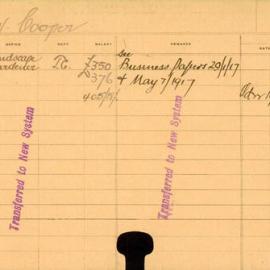 Cooper
OFFICE DEPT. SALARY REMARKS
Landscape Gardener £350 See Business Papers 29/1/17
£376 & May 7/1917
Transferred to New System
Transferred to New System